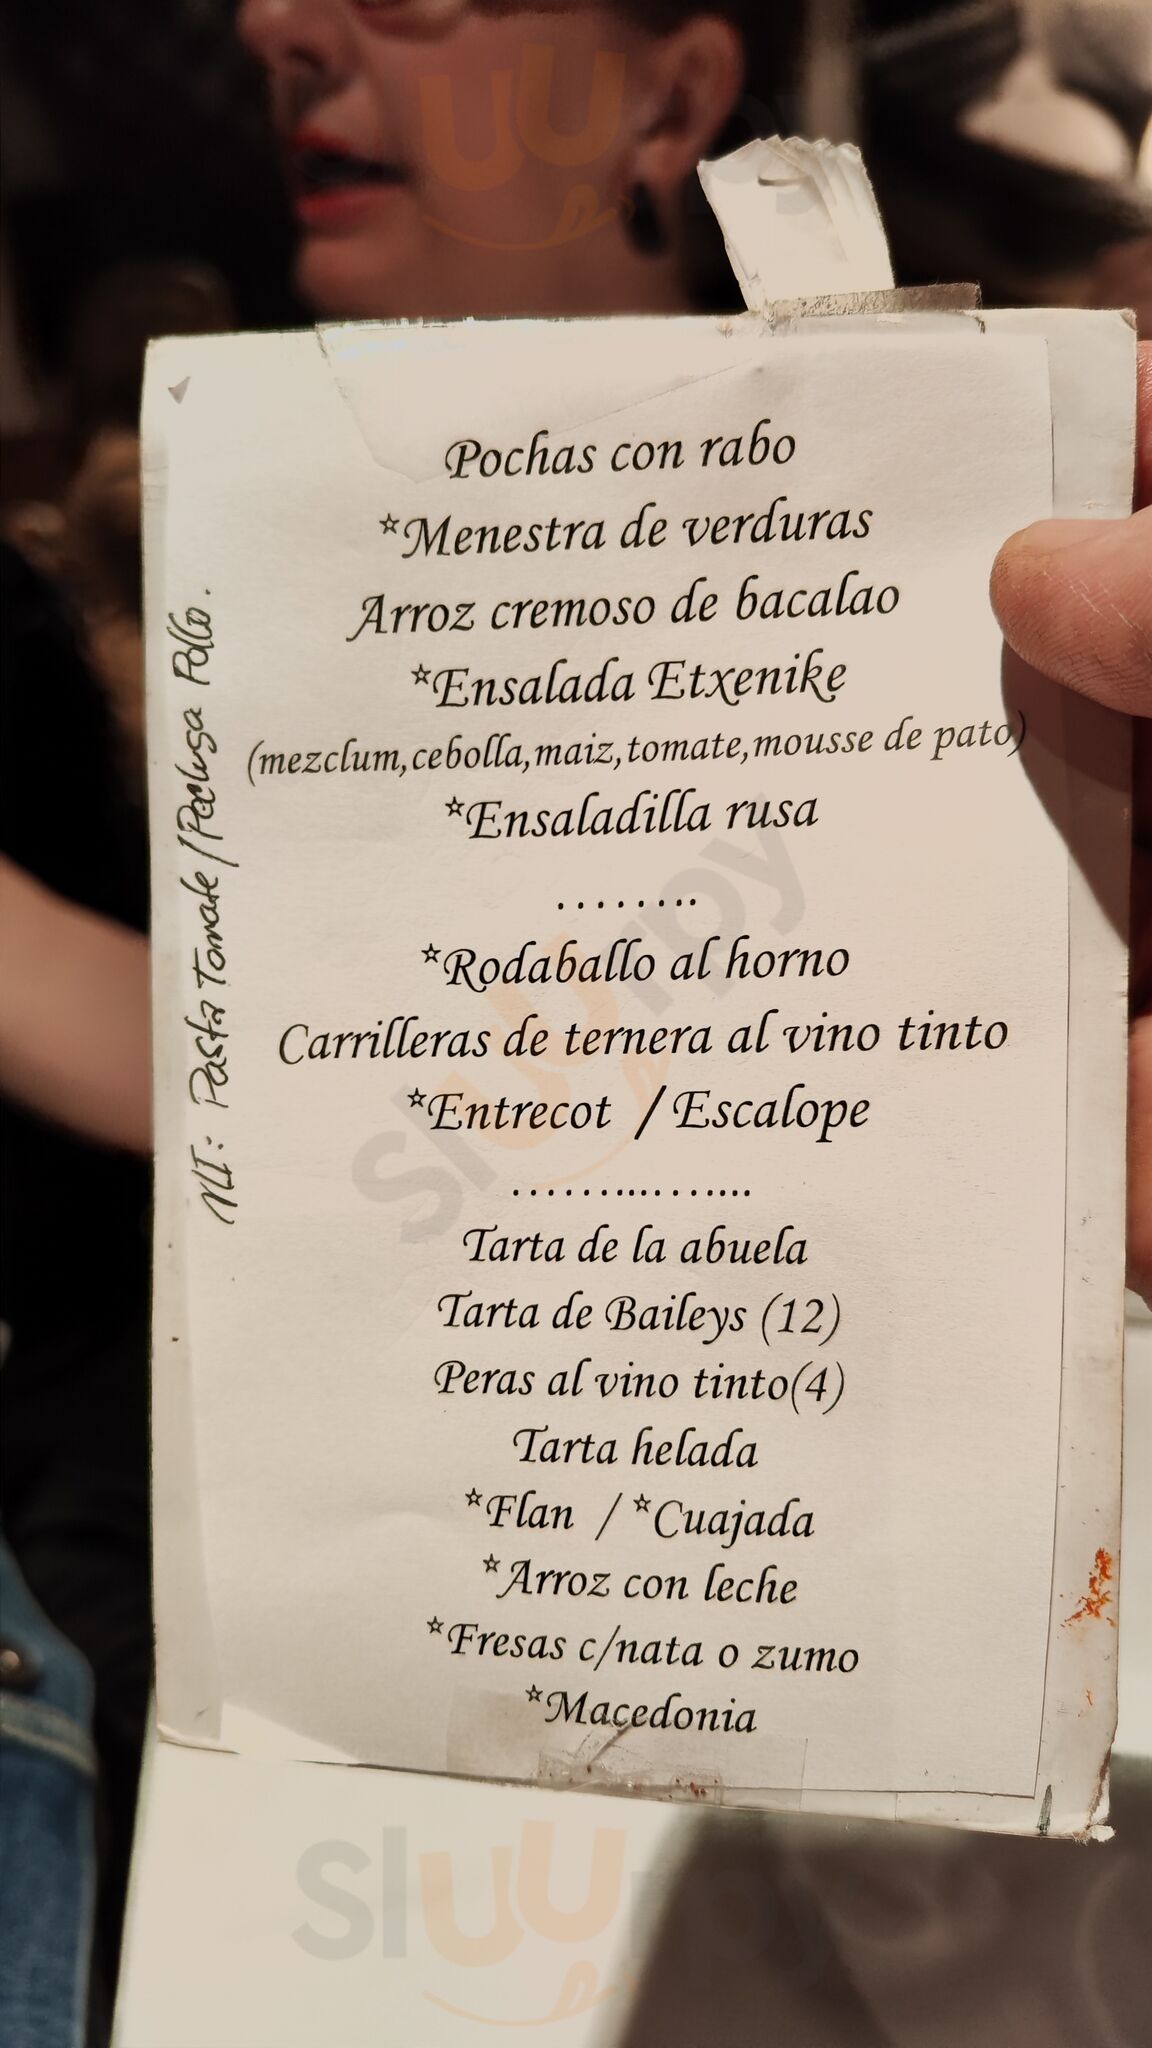 Pochas con rabo
*Menestra de verduras
Arroz cremoso de bacalao
*Ensalada Etxenike
(mezclum,cebolla,maiz,tomate,mousse de pato)
*Ensaladilla rusa
........
*Rodaballo al horno
Carrilleras de ternera al vino tinto
*Entrecot / Escalope
..................
Tarta de la abuela
Tarta de Baileys (12)
Peras al vino tinto(4)
Tarta helada
*Flan / *Cuajada
*Arroz con leche
*Fresas c/nata o zumo
*Macedonia
Pasta Tomate / Pechuga Pollo.
Sluurpy
Sluurpy
Sluurpy